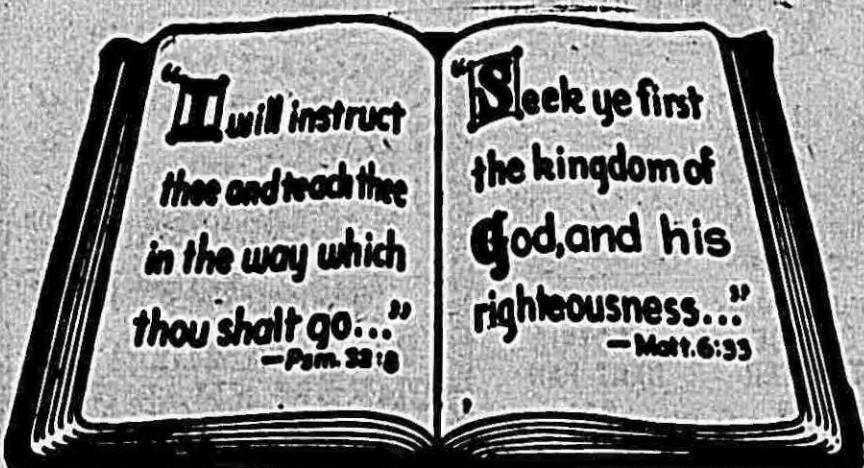 "I will instruct
thee and teach thee
in the way which
thou shalt go..."
—Psm. 32:8
"Seek ye first
the kingdom of
God, and his
righteousness..."
—Matt. 6:33